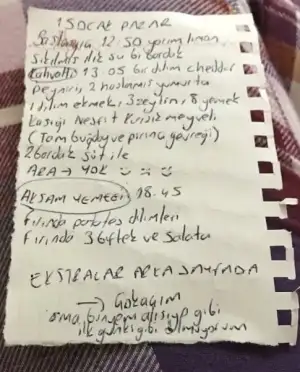 1 OCAK PAZAR
Başlangıç 12:50 yarım liman
Sıkılmış ılık su bir bardak
Kahvaltı 13:05 bir dilim cheddar
peyniri, 2 haşlanmış yumurta
1 dilim ekmek, 3 zeytin, 8 yemek
kaşığı Nesfit kırmızı meyveli
(Tam buğday ve pirinç gevreği)
2 bardak süt ile
ARA → YOK
AKŞAM YEMEĞİ 18.45
Fırında patates dilimleri
Fırında 3 biftek ve salata
EKSTRALAR ARKA SAYFADA
→ Gökağım
ama, bünyem alışıyor gibi
ilk günkü gibi olmuyorum